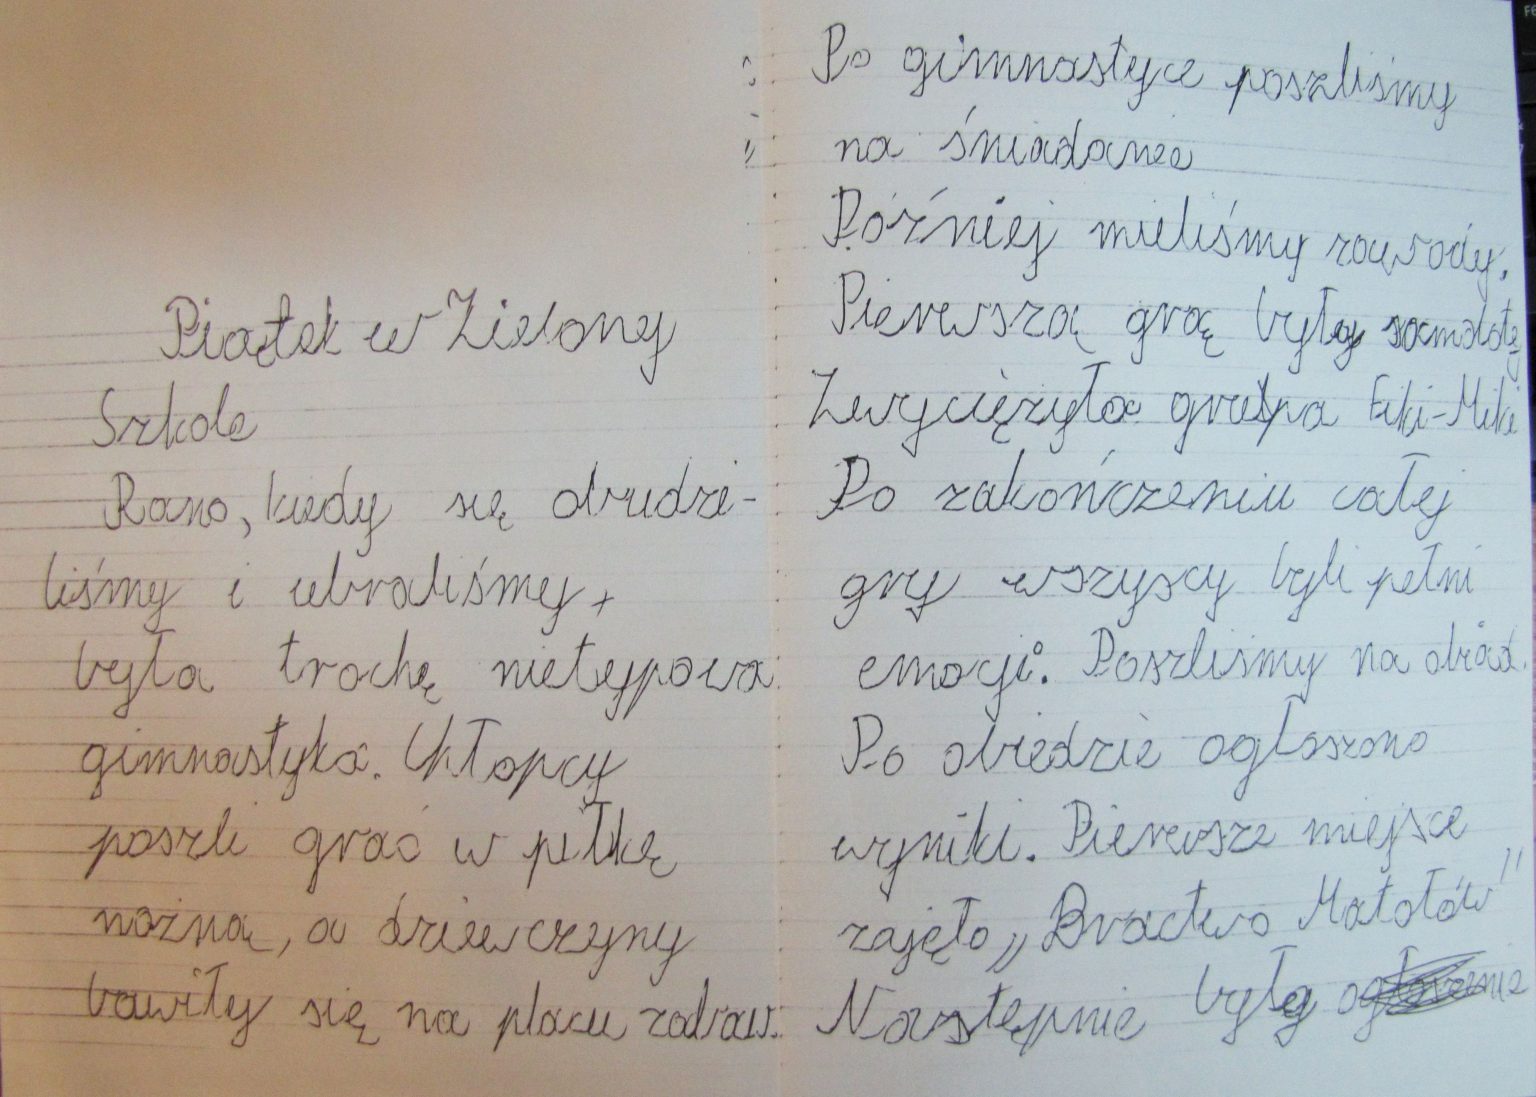 Piątek w Zielony
Szkole
Rano, kiedy się obudzi-
liśmy i ubraliśmy,
była trochę nietypowa
gimnastyka. Chłopcy
poszli grać w piłkę
nożną, a dziewczyny
bawiły się na placu zabaw.
Po gimnastyce poszliśmy
na śniadanie
Później mieliśmy zawody.
Pierwszą grą były samoloty
Zwyciężyła grupa Eiki-Miki
Po zakończeniu całej
gry wszyscy byli pełni
emocji. Poszliśmy na obiad.
Po obiedzie ogłoszono
wyniki. Pierwsze miejsce
zajęło „Bractwo Matołów"
Następnie były